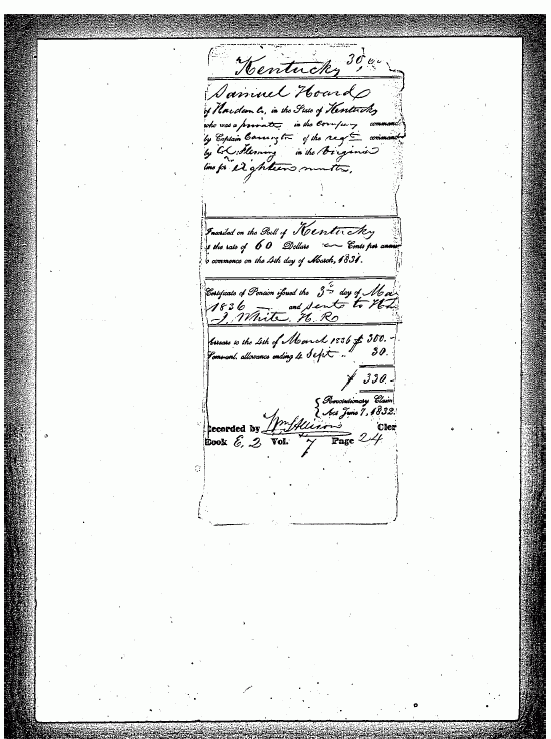 Kentucky 30,00
Samuel Hoard
of Hardin Co, in the State of Kentucky
who was a private in the company command
by Captain of the regt command
by Col Fleming in the Virginia
line for eighteen months.
Inscribed on the Roll of Kentucky
t the rate of 60 Dollars Cents per annum
o commence on the 4th day of March, 1831.
Certificate of Pension issued the 3d day of Ma
1836 and sent to H
J. White. H. R
Arrears to the 4th of March 1836 $ 300.-
Semi-anl. allowance ending 4 Sept " 30.
$ 330.-
Revolutionary Claim
Act June 7, 1832.
Recorded by Wm Allison Cler
Book E, 2 Vol. 7 Page 24